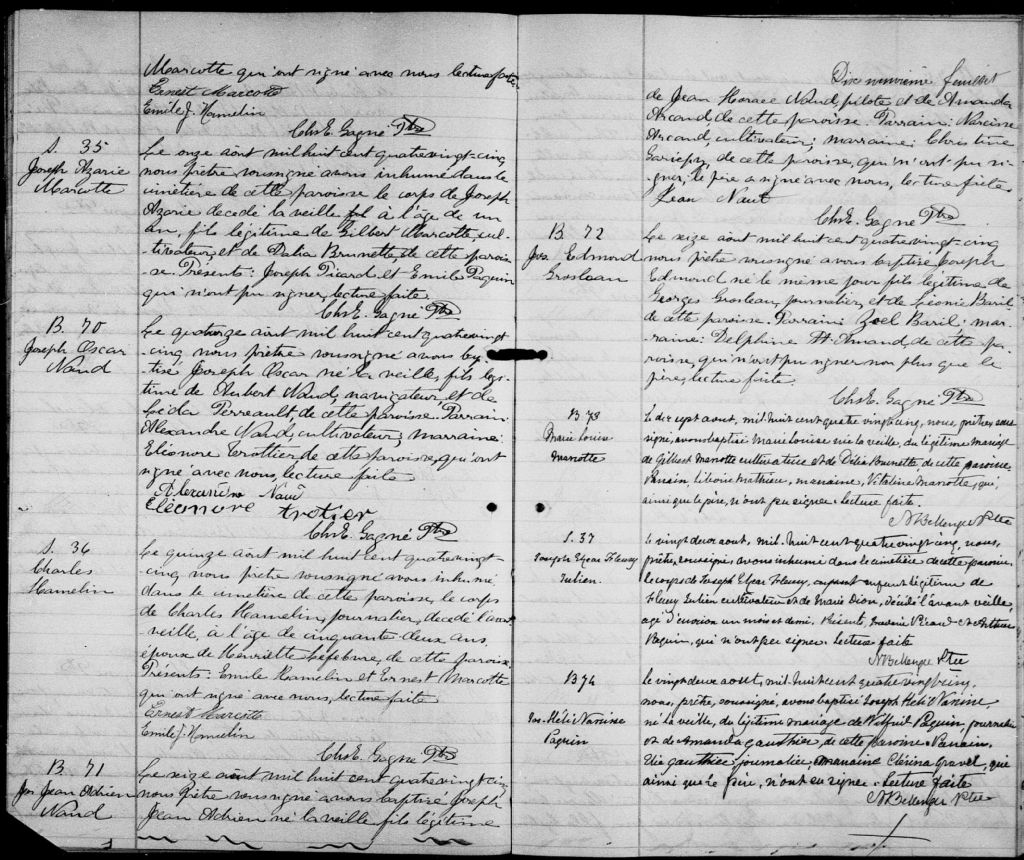 Marcotte qui ont signé avec nous lecture faite
Ernest Marcotte
Emile J. Hamelin
Chs E. Gagné Ptre
S. 35
Joseph Azarie
Marcotte
Le onze août mil huit cent quatrevingt-cinq
nous prêtre soussigné avons inhumé dans le
cimetière de cette paroisse le corps de Joseph
Azarie decedé la veille à l'âge de un
an, fils légitime de Gilbert Marcotte, cul-
tivateur, et de Dalia Brunette, de cette parois-
se. Présents: Joseph Picard et Emile Paquin
qui n'ont pu signer, lecture faite.
Chs E. Gagné Ptre
B. 70
Joseph Oscar
Naud
Le quatorze août mil huit cent quatrevingt-
cinq nous prêtre soussigné avons bap-
tisé Joseph Oscar né la veille, fils legi-
time de Hubert Naud, navigateur, et de
Léda Perreault de cette paroisse. Parrain:
Alexandre Naud, cultivateur; marraine:
Eléonore Trottier de cette paroisse, qui ont
signé avec nous, lecture faite
Alexandre Naud
Eléonore trotier
Chs E. Gagné Ptre
S. 36
Charles
Hamelin
Le quinze août mil huit cent quatrevingt-
cinq nous prêtre soussigné avons inhumé
dans le cimetière de cette paroisse, le corps
de Charles Hamelin, journalier, decédé l'avant
veille, à l'âge de cinquante deux ans
époux de Henriette Lefebvre, de cette paroisse
Présents: Emile Hamelin et Ernest Marcotte
qui ont signé avec nous, lecture faite
Ernest Marcotte
Emile J. Hamelin
Chs E. Gagné Ptre
B. 71
Jos Jean Adrien
Naud
Le seize août mil huit cent quatrevingt-cinq
nous Prêtre soussigné avons baptisé Joseph
Jean Adrien né la veille fils légitime
Dix neuvième feuillet
de Jean Horace Naud, pilote et de Amanda
Arcand, de cette paroisse. Parrain: Narcisse
Arcand, cultivateur; marraine: Christine
Gariépy, de cette paroisse, qui n'ont pu si-
gner, le père a signé avec nous, lecture faite.
Jean Naut
Chs E. Gagné Ptre
B. 72
Jos. Edmond
Grosleau
Le seize août mil huit cent quatrevingt-cinq
nous prêtre soussigné avons baptisé Joseph
Edmond né le même jour fils légitime de
Georges Grosleau, journalier, et de Léonie Baril
de cette paroisse. Parrain: Zoel Baril; mar-
raine: Delphine St Amand, de cette pa-
roisse, qui n'ont pu signer non plus que le
père, lecture faite.
Chs E. Gagné Ptre
B 73
Marie Louise
Marcotte
Le dix sept aout, mil huit cent quatre vingt cinq, nous, prêtre, sous-
signé, avons baptisé Marie Louise née la veille, du légitime mariage
de Gilbert Marcotte cultivateur et de Délia Brunette, de cette paroisse,
Parrain Liboire Mathieu, marraine, Vitaline Marcotte, qui,
ainsi que le père, n'ont pu signer. Lecture faite.
N Bellenger Ptre
S. 37
Joseph Elzear Fleury
Julien.
Le vingt deux aout, mil huit cent quatre vingt cinq, nous,
prêtre, soussigné, avons inhumé dans le cimetière de cette paroisse,
le corps de Joseph Elzear Fleury, enfant légitime de
Fleury Julien cultivateur et de Marie Dion, décédé l'avant veille,
agé d'environ un mois et demi. Présents, Picard et Arthur
Paquin, qui n'ont pu signer. Lecture faite
N Bellenger Ptre
B 74
Jos. Hélie Narcisse
Paquin
Le vingt deux aout, mil huit cent quatre vingt cinq,
nous, prêtre, soussigné, avons baptisé Joseph Hélie Narcisse
né la veille, du légitime mariage de Wilfrid Paquin, journalier
et de Amanda Gauthier, de cette paroisse. Parrain,
Elie Gauthier, journalier, marraine Clérina Gravel, qui
ainsi que le père, n'ont su signer. Lecture faite
N Bellenger Ptre